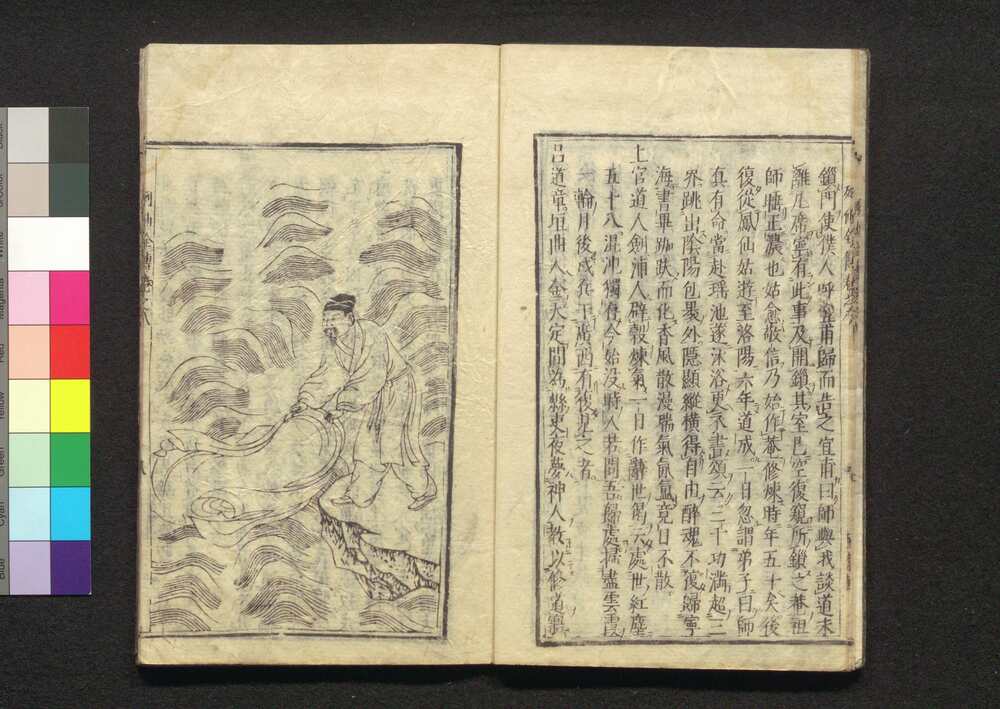 鎖門使僕人呼宜甫歸而告之宜甫曰師與我談道未
離几席寧有此事及開鎖其室已空復窺所鎖之菴祖
師睡正濃也姑愈敬信乃始作菴修煉時年五十矣後
復從鳳仙姑遊至洛陽六年道成一日忽謂弟子曰師
真有命當赴瑶池遂沐浴更衣書頌云三千功滿超三
界跳出陰陽包裹外隱顯縱橫得自由醉魂不復歸寧
海書畢跏趺而化香風散漫瑞氣氤氳竟日不散
上官道人劍浦人辟穀煉氣一日作辭世偈云處世紅塵
五十八混沌獨存今始没時人若問吾歸處掃盡雲霞
一輪月後或在有復見之者
呂道章垣曲人金大定間為縣吏夜夢神人教以修道寤
列仙全傳 八
Black
3/Color
White
Magenta
Red
Yellow
Green
Cyan
Blue